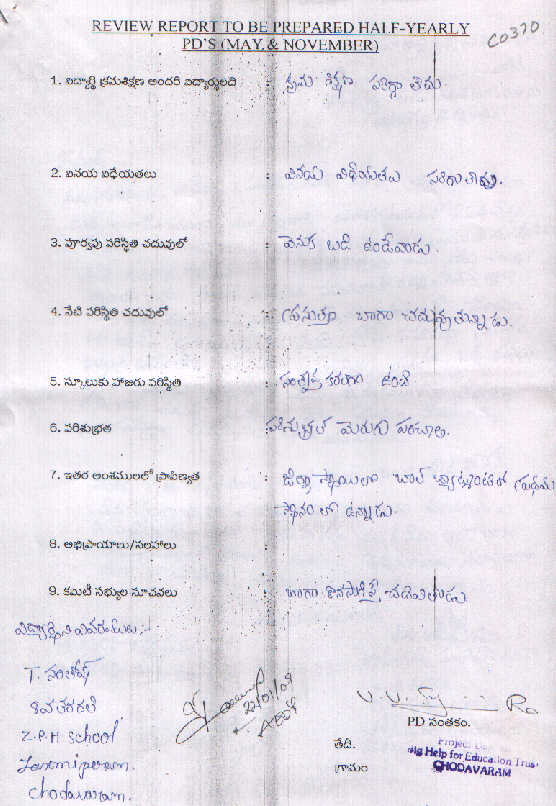 REVIEW REPORT TO BE PREPARED HALF-YEARLY
PD'S (MAY, & NOVEMBER)
C0370
1. విద్యార్థి క్రమశిక్షణ అందరి విద్యార్థులది : క్రమ శిక్షణ సరిగ్గా లేదు.
2. వినయ విధేయతలు : వినయ విధేయతలు
3. పూర్వపు పరిస్థితి చదువులో : వెనుక బడి ఉండేవాడు.
4. నేటి పరిస్థితి చదువులో : ప్రస్తుతం బాగా చదువుతున్నాడు.
5. స్కూలుకు హాజరు పరిస్థితి : సంతృప్తి కరంగా ఉంది
6. పరిశుభ్రత : పరిశుభ్రత మెరుగు పరచాలి.
7. ఇతర అంశములలో ప్రావిణ్యత : జిల్లా స్థాయిలో బాల్ బ్యాట్మెంటన్ లో ప్రథమ
స్థానం లో ఉన్నాడు.
8. అభిప్రాయాలు/సలహాలు :
9. కమిటీ సభ్యుల సూచనలు : బాగా కొనసాగిస్తే చదివుతాడు
విద్యార్థి వివరములు:-
T. సంతోష్
8వ తరగతి
Z.P.H School
Laxmipuram.
Chodavaram.
22/01/09
PD సంతకం.
తేది.
గ్రామం
Project
Help for Education Trust
CHODAVARAM